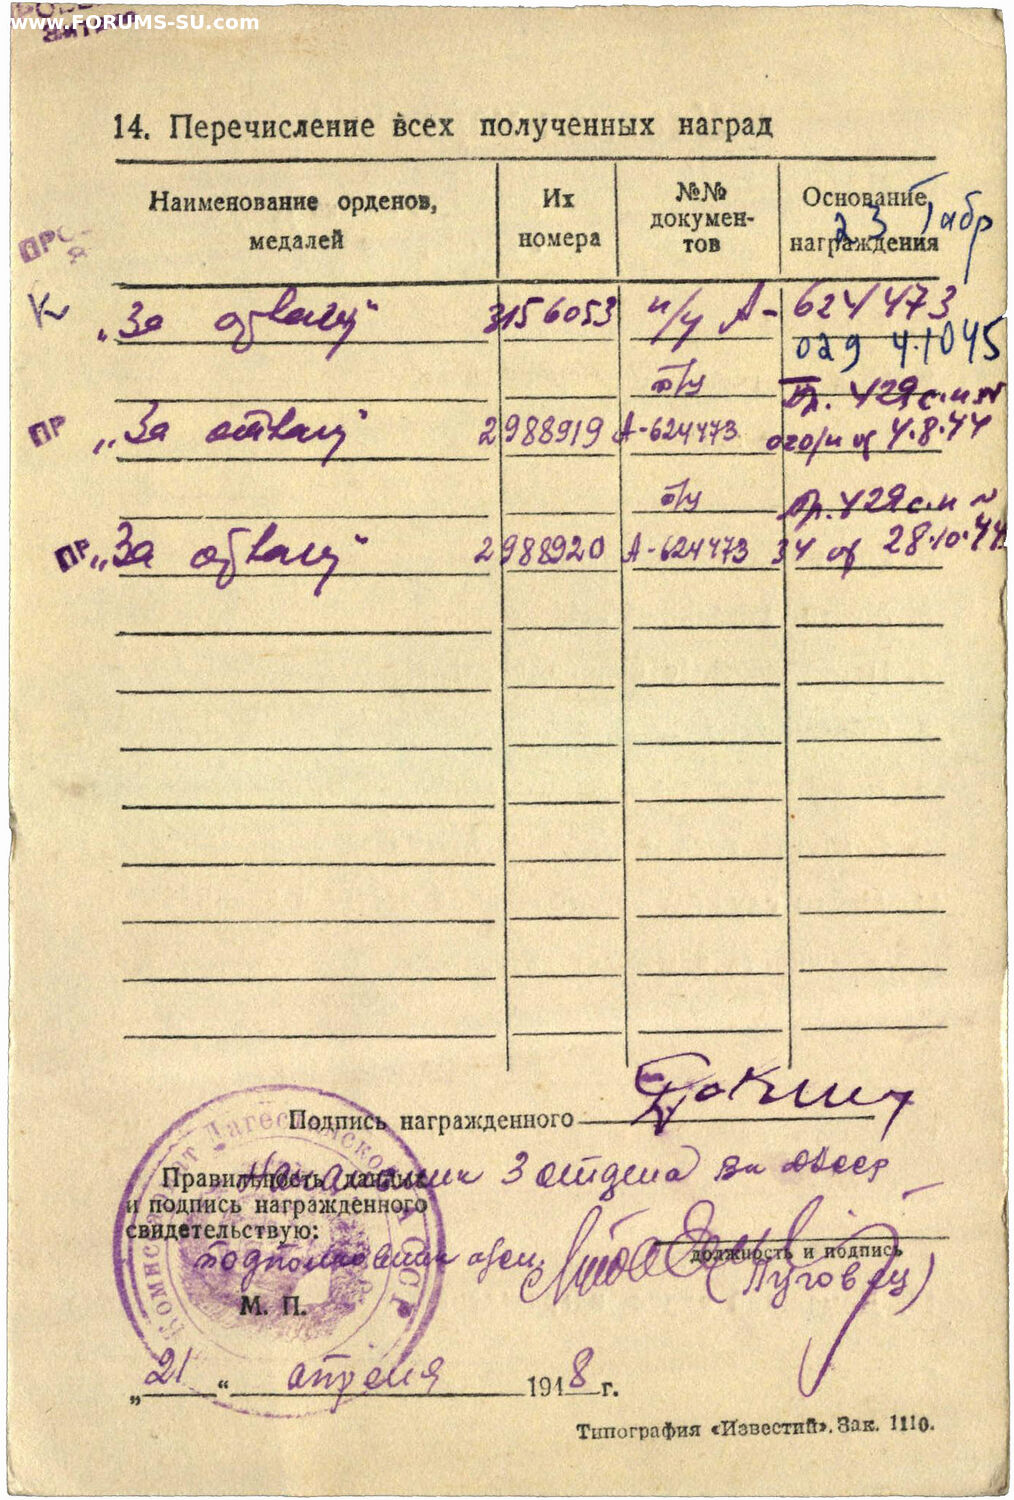 www.FORUMS-SU.com
14. Перечисление всех полученных наград
Наименование орденов, медалей
Их номера
№№ документов
Основание награждения
23
К
„За отвагу“ 3156053 п/у А-624473
029 4.1045
в/у Пр. 429 с.п. №
ПР „За отвагу“ 2988919 А-624473 от 4.8.44
в/у Пр. 429 с.п. №
ПР „За отвагу“ 2988920 А-624473 34 от 28.10.44
Подпись награжденного
Начальник 3 отдела
Правильность данных
и подпись награжденного
свидетельствую:
подполковник
должность и подпись
(Пуговец)
М. П.
„21“ апреля 1948 г.
Типография «Известий». Зак. 1110.